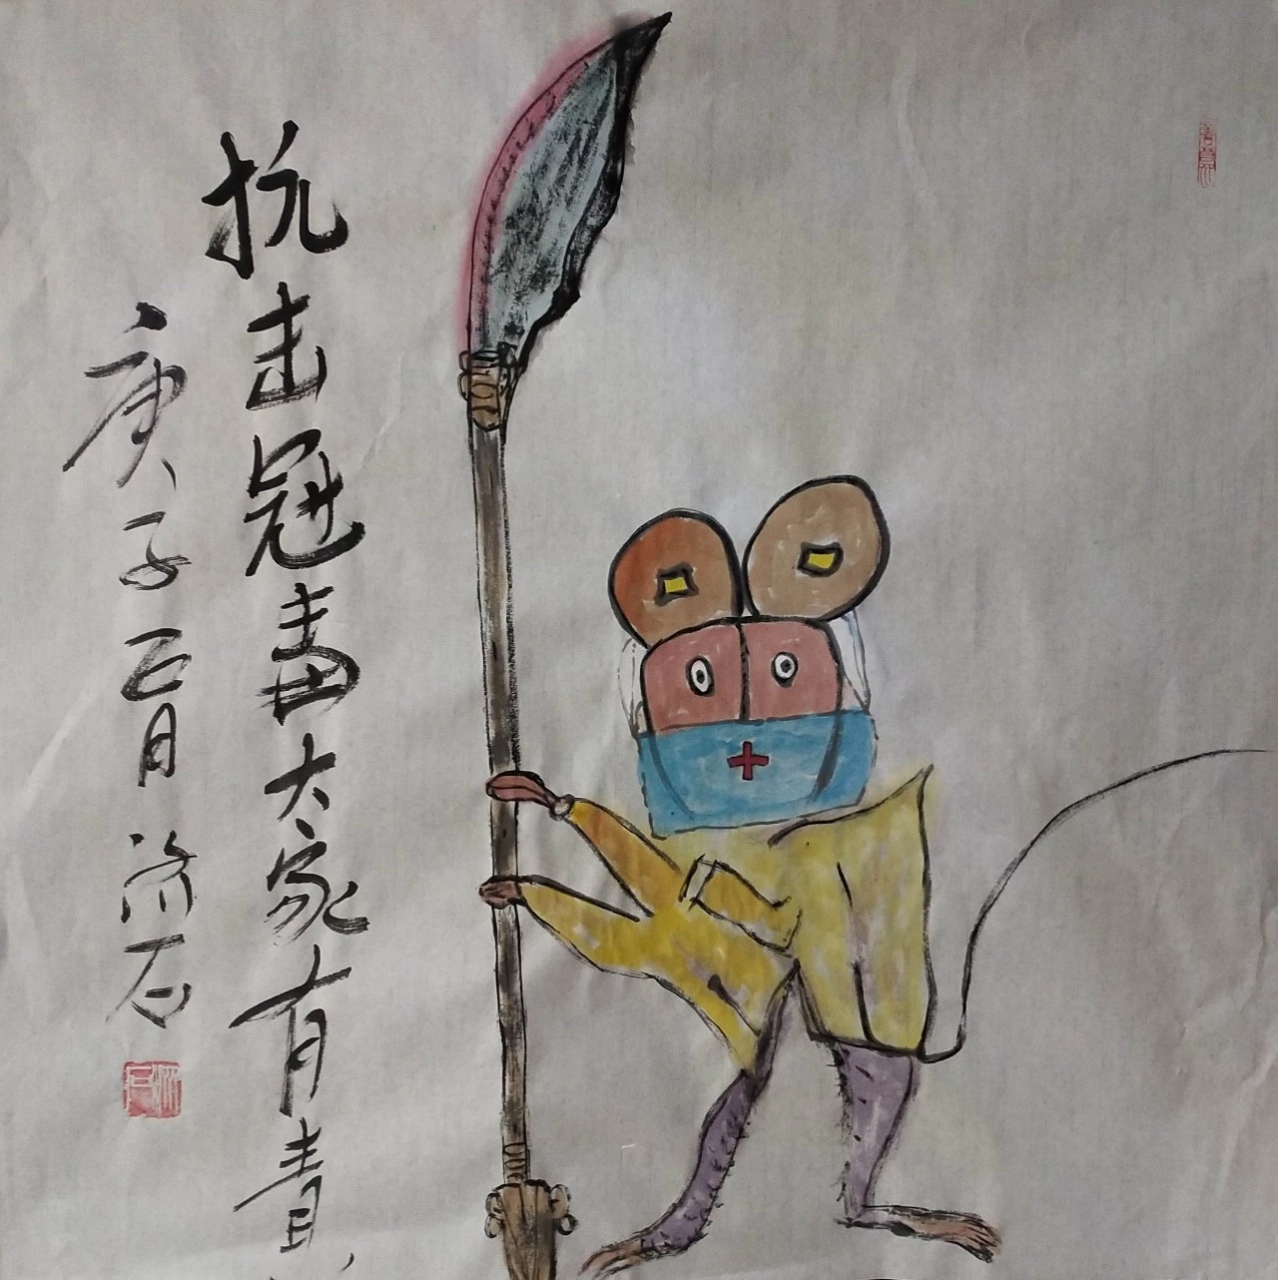 抗击冠毒大家有責
庚子正月 济石